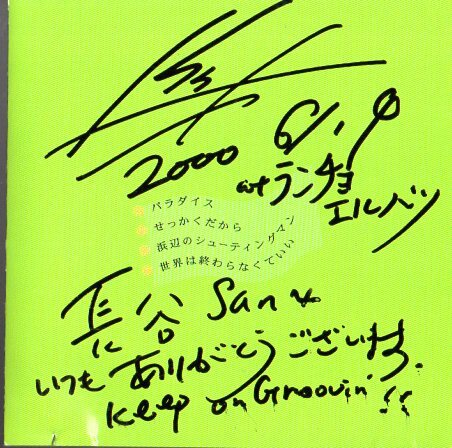 2000 6/10
at ランチョ
エルパソ
パラダイス
せっかくだから
浜辺のシューティングマン
世界は終わらなくていい
長谷 San に
いつも ありがとうございます.
Keep on Groovin' !!